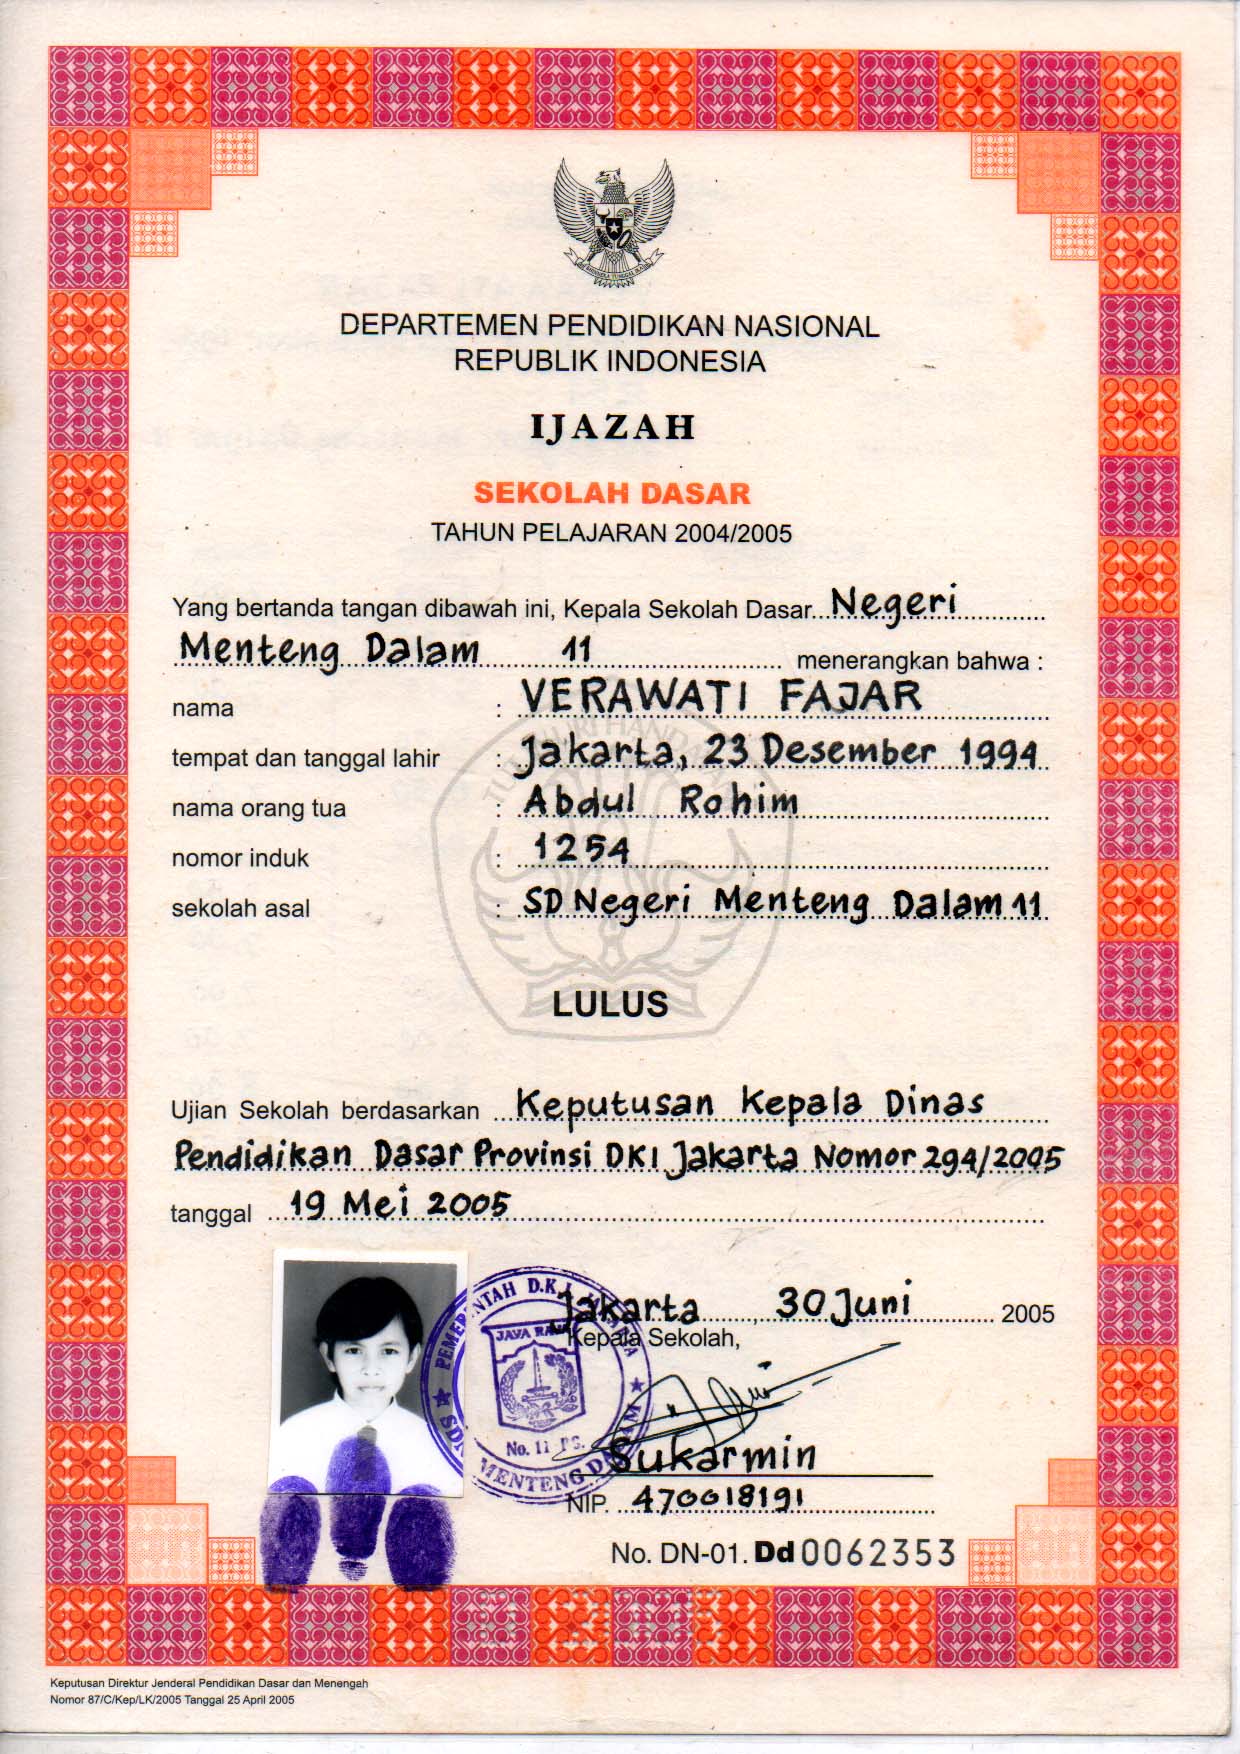 DEPARTEMEN PENDIDIKAN NASIONAL
REPUBLIK INDONESIA
IJAZAH
SEKOLAH DASAR
TAHUN PELAJARAN 2004/2005
Yang bertanda tangan dibawah ini, Kepala Sekolah Dasar Negeri
Menteng Dalam 11 menerangkan bahwa :
nama : VERAWATI FAJAR
tempat dan tanggal lahir : Jakarta, 23 Desember 1994
nama orang tua : Abdul Rohim
nomor induk : 1254
sekolah asal : SD Negeri Menteng Dalam 11
LULUS
Ujian Sekolah berdasarkan Keputusan Kepala Dinas
Pendidikan Dasar Provinsi DKI Jakarta Nomor 294/2005
tanggal 19 Mei 2005
Jakarta, 30 Juni 2005
Kepala Sekolah,
JAYA RAYA
No. 11 PG.
MENTENG DALAM
Sukarmin
NIP. 470018191
No. DN-01. Dd 0062353
Keputusan Direktur Jenderal Pendidikan Dasar dan Menengah
Nomor 87/C/Kep/LK/2005 Tanggal 25 April 2005